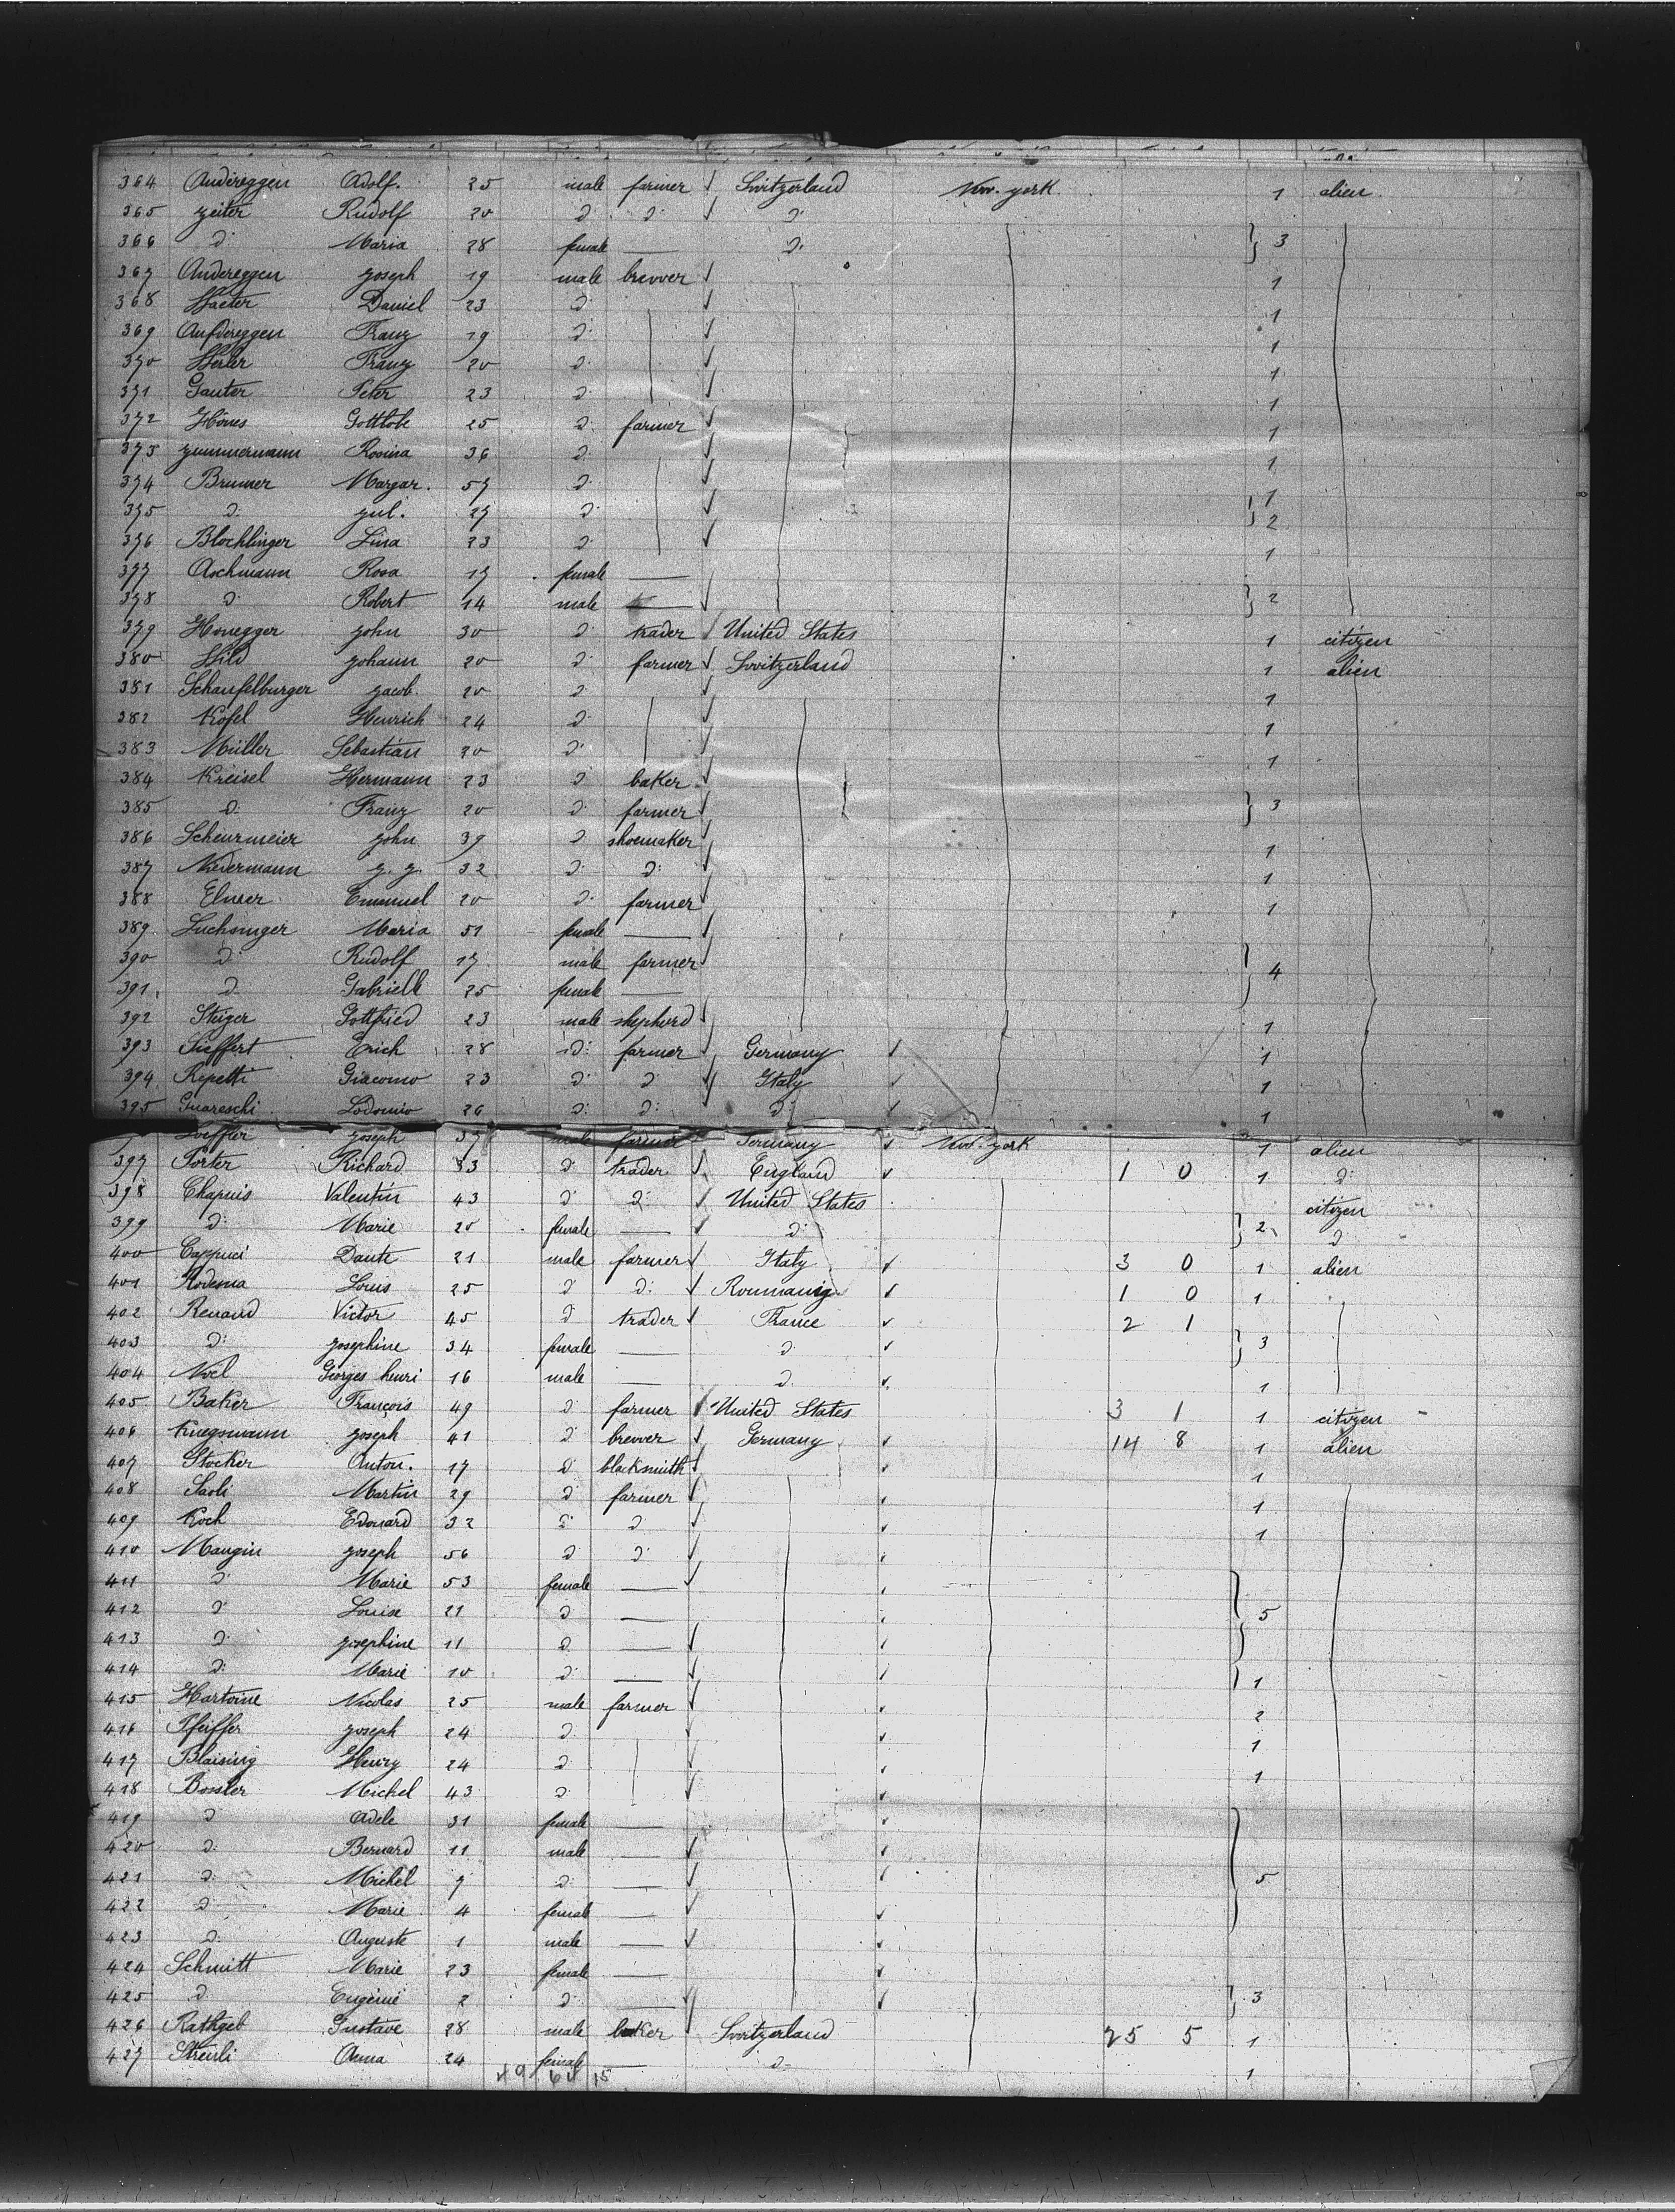 364 Andereggen Adolf. 25 male farmer Switzerland New-york 1 alien
365 zeiter Rudolf 20 d: d: d:
366 d: Maria 28 female — d: 3
367 Andereggen joseph 19 male brewer 1
368 Daniel 23 d: 1
369 Aufdereggen Franz 19 d: 1
370 Franz 20 d: 1
371 Gauter Peter 23 d: 1
372 Höues Gottlob 25 d: farmer 1
373 zummermann Rosina 36 d: 1
374 Brunner Margar. 57 d: 1
375 d: jul. 27 d: 2
376 Blochlinger Lina 23 d: 1
377 Aschmann Rosa 17 female —
378 d: Robert 14 male — 2
379 Honegger john 30 d: trader United States 1 citizen
380 Hild johann 20 d: farmer Switzerland 1 alien
381 Schaufelburger jacob. 20 d: 1
382 Kofel Heinrich 24 d: 1
383 Müller Sebastian 20 d: 1
384 Kreisel Hermann 23 d: baker
385 d: Franz 20 d: farmer 3
386 Scheurmeier john 39 d: shoemaker 1
387 Niedermann j. j. 32 d: d: 1
388 Elmer Emanuel 20 d: farmer 1
389 Luchsinger Maria 51 female —
390 d: Rudolf 17 male farmer 4
391 d: Gabrielle 25 female —
392 Steiger Gottfried 23 male shepherd 1
393 Sieffert Erich 28 d: farmer Germany 1
394 Repetti Giacomo 23 d: d: Italy 1
395 Guareschi Lodomio 26 d: d: d: 1
Loeffler joseph 37 male farmer Germany New-york 1 alien
397 Porter Richard 33 d: trader England 1 0 1 d:
398 Chapuis Valentin 43 d: d: United States citizen
399 d: Marie 20 female — d: 2 d:
400 Cappuci Dante 21 male farmer Italy 3 0 1 alien
401 Rodema Louis 25 d: d: Roumania 1 0 1
402 Renaud Victor 45 d: trader France 2 1
403 d: josephine 34 female — d: 3
404 Noel Georges henri 16 male — d: 1
405 Baker François 49 d: farmer United States 3 1 1 citizen
406 Kruegsmann joseph 41 d: brewer Germany 14 8 1 alien
407 Stocker Anton. 17 d: blacksmith 1
408 Saoli Martin 29 d: farmer 1
409 Koch Edouard 32 d: d: 1
410 Maugin joseph 56 d: d:
411 d: Marie 53 female —
412 d: Louise 21 d: — 5
413 d: josephine 11 d: —
414 d: Marie 10 d: — 1
415 Hartoine Nicolas 25 male farmer 2
416 Pfeiffer joseph 24 d: 1
417 Blaising Henry 24 d: 1
418 Bossler Michel 43 d:
419 d: Adele 31 female —
420 d: Bernard 11 male —
421 d: Michel 7 d: — 5
422 d: Marie 4 female —
423 d: Auguste 1 male —
424 Schmitt Marie 23 female —
425 d: Eugénie 2 d: — 3
426 Rathgeb Gustave 28 male baker Switzerland 25 5 1
427 Streuli Anna 24 female — d: 1
49 64 15